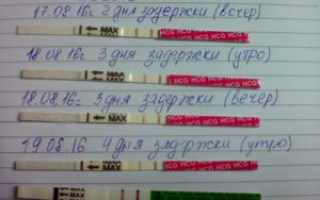 17.08.16г 2 дня задержки (вечер)
MAX HCG HCG HCG HCG
18.08.16г 3 дня задержки (утро)
MAX HCG HCG HCG HCG
18.08.16г 3 дня задержки (вечер)
MAX HCG HCG HCG HCG
19.08.16 4 дня задержки (утро)
MAX HCG HCG HCG HCG
MAX